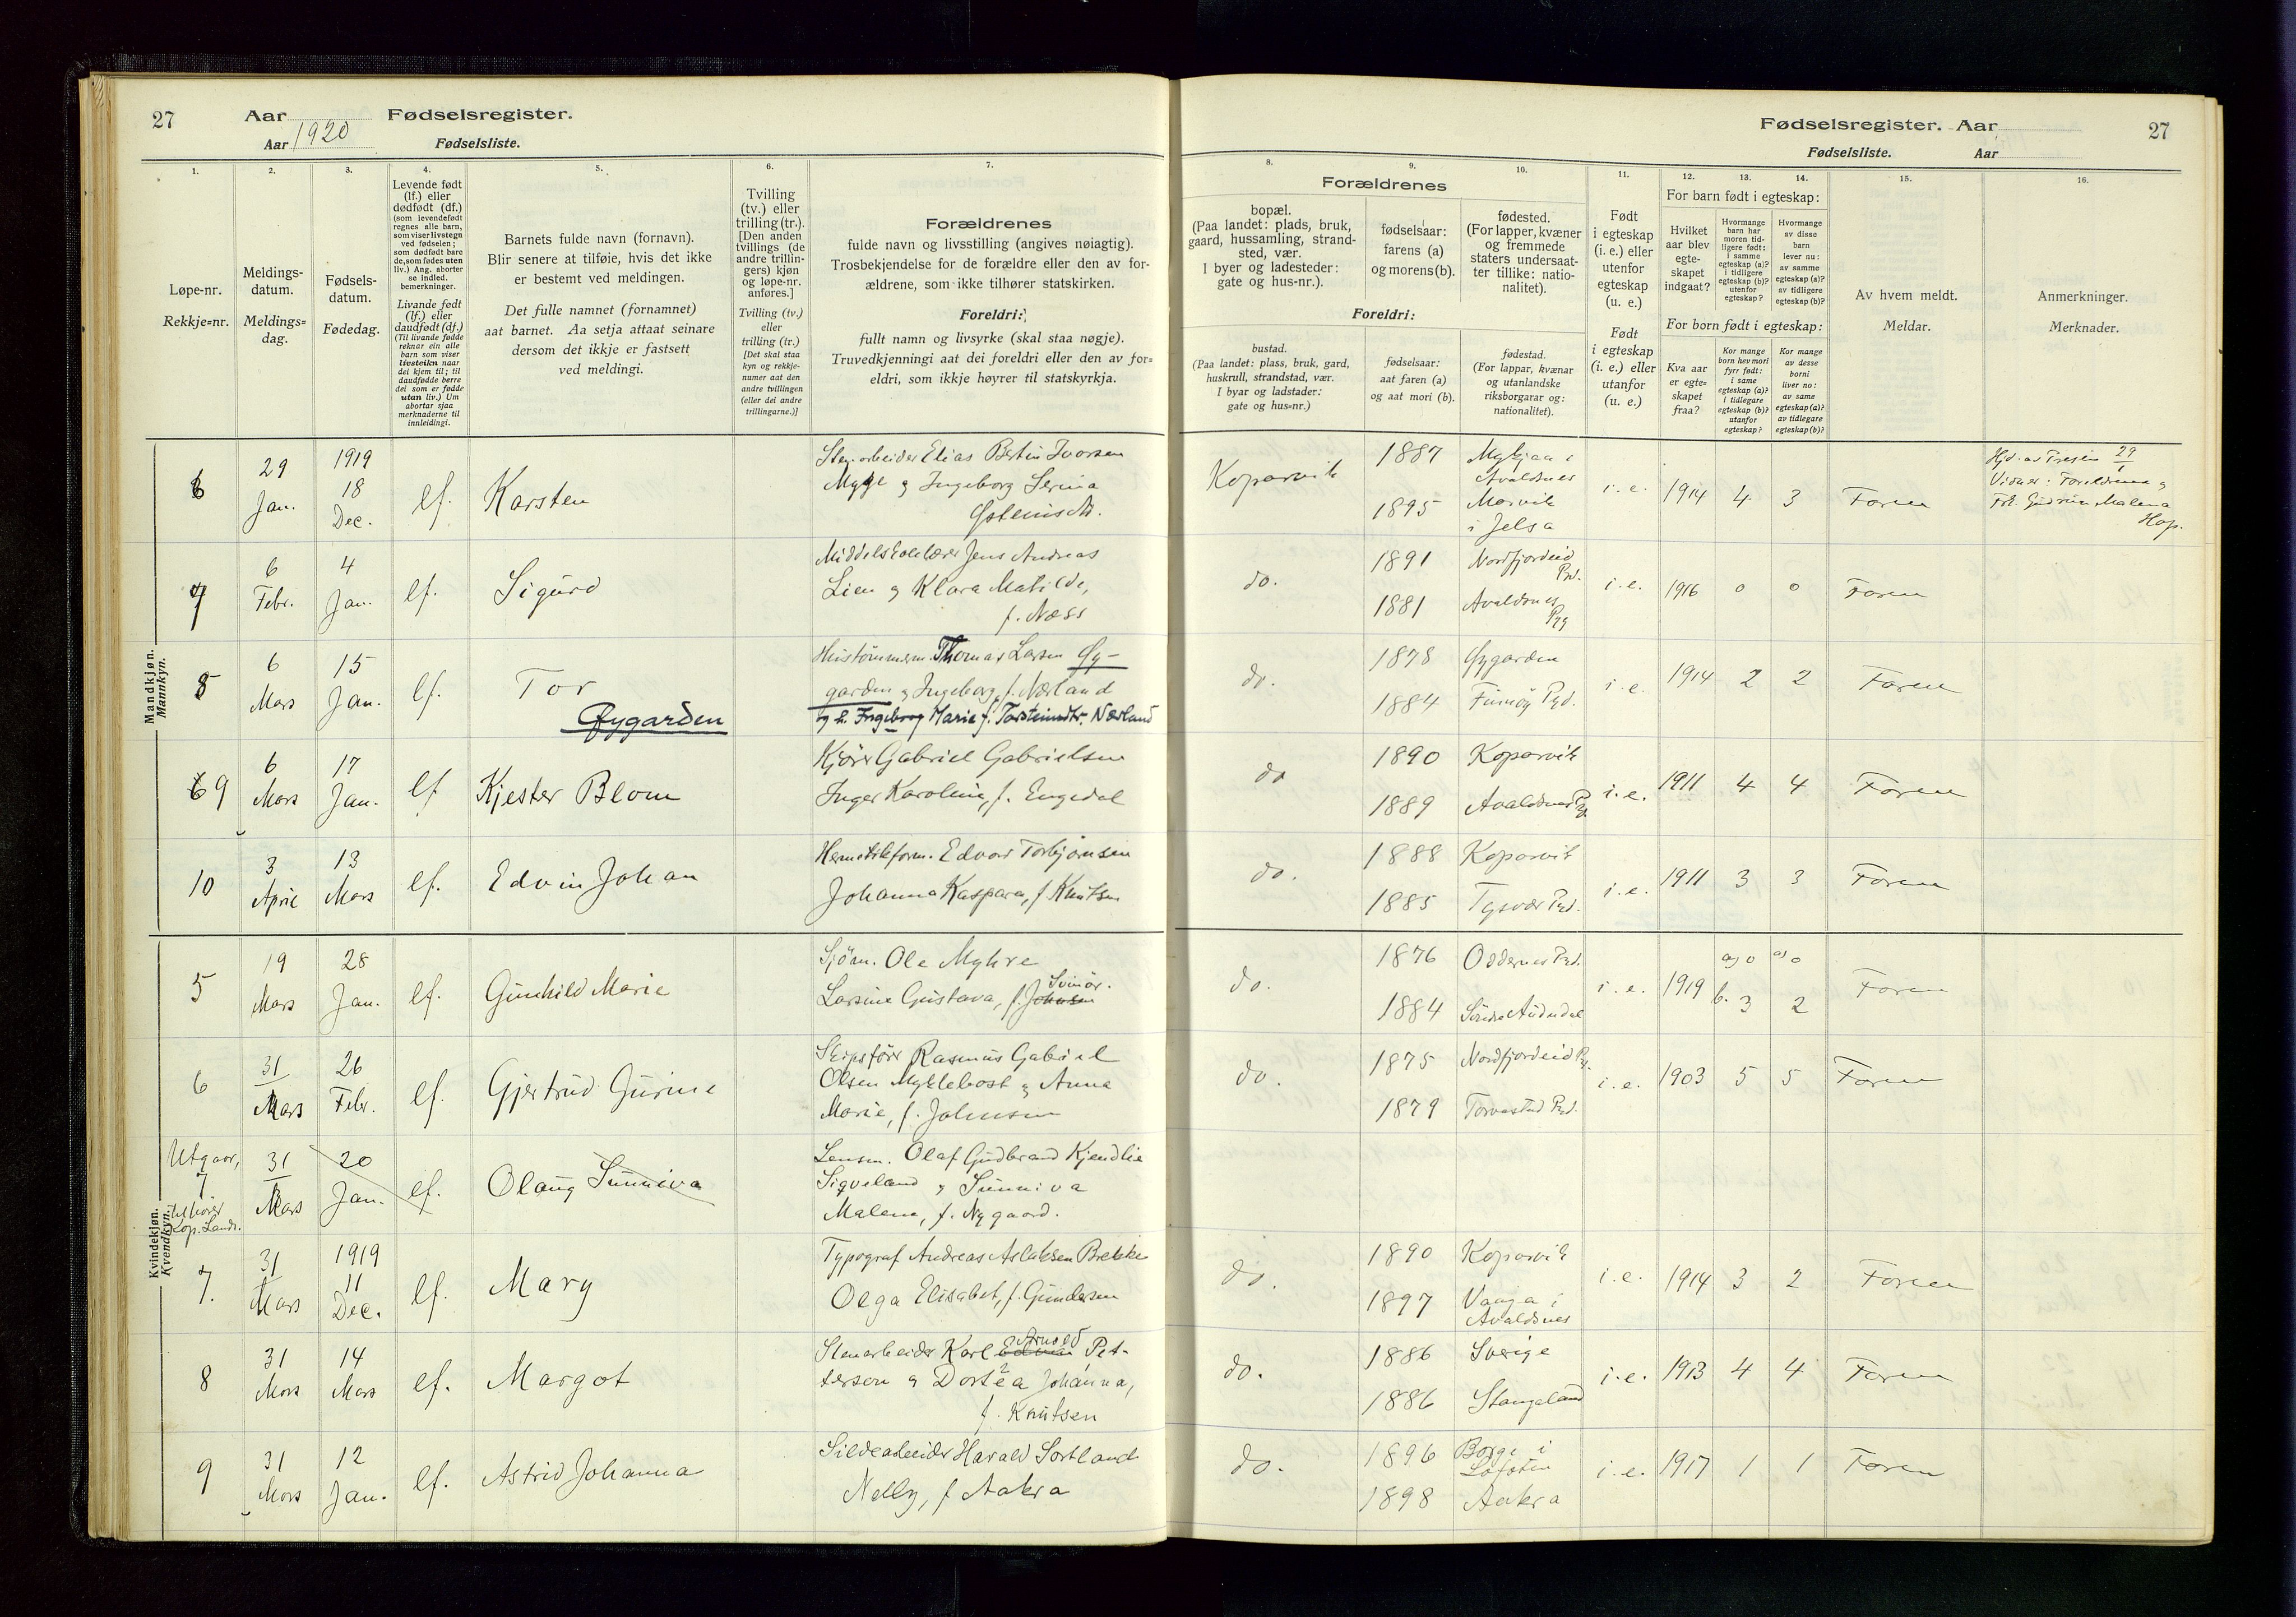 27
Aar
Fødselsregister.
Aar 1920
Fødselsliste.
1.
2.
3.
4.
5.
6.
7.
Løpe-nr.
Rekkje=nr.
Meldings-
datum.
Meldings=
dag.
Fødsels-
datum.
Fødedag.
Levende født
(lf.) eller
dødfødt (df.)
(som levendefødt
regnes alle barn,
som viser livstegn
ved fødselen;
som dødfødt bare
de, som fødes uten
liv.) Ang. aborter
se indled.
bemerkninger.
Livande født
(lf.) eller
daudfødt (df.)
(Til livande fødde
reknar ein alle
barn som viser
livsteikn naar
dei kjem til; til
daudfødde berre
dei som er fødde
utan liv.) Um
abortar sjaa
merknaderne til
innleidingi.
Barnets fulde navn (fornavn).
Blir senere at tilføie, hvis det ikke
er bestemt ved meldingen.
Det fulle namnet (fornamnet)
aat barnet. Aa setja attaat seinare
dersom det ikkje er fastsett
ved meldingi.
Tvilling
(tv.) eller
trilling (tr.).
[Den anden
tvillings (de
andre trillin-
gers) kjøn
og løpe-nr.
anføres.]
Tvilling (tv.)
eller
trilling (tr.)
[Det skal staa
kyn og rekkje-
numer aat den
andre tvillingen
(eller dei andre
trillingarne.)]
Forældrenes
fulde navn og livsstilling (angives nøiagtig).
Trosbekjendelse for de forældre eller den av for-
ældrene, som ikke tilhører statskirken.
Foreldri:
fullt namn og livsyrke (skal staa nøgje).
Truvedkjenningi aat dei foreldri eller den av for=
eldri, som ikkje høyrer til statskyrkja.
Mandkjøn.
Mannkyn.
6
29
Jan.
1919
18
Dec.
lf.
Karsten
Stenarbeider Elias Bertin Ivorsen
Myge og Ingeborg Serina
7
6
Febr.
4
Jan.
lf.
Sigurd
Middelskolelærer Jens Andreas
Lien og Klara Matilde,
f. Næss
8
6
Mars
15
Jan.
lf.
Tor
Øygarden
Hustømmerm. Thomas Larsen Øy-
garden og Ingeborg, f. Nærland
og h. Ingeborg Marie f. Torsteinsdtr. Nærland
9
6
Mars
17
Jan.
lf
Kjester Blom
Kjører Gabriel Gabrielsen
Inger Karoline, f. Engedal
10
3
April
13
Mars
lf.
Edvin Johan
Hermetikform. Edvard Torbjørnsen
Johanna Kaspara, f. Knutsen
Kvindekjøn.
Kvendkyn.
5
19
Mars
28
Jan.
lf.
Gunhild Marie
Sjøm. Ole Myhre
Svinør.
Larsine Gustava, f. Johnsen
6
31
Mars
26
Febr.
lf.
Gjertrud Gurine
Skipsfører Rasmus Gabriel
Olsen Myklebost og Anna
Marie, f. Johnsen
Utgaar,
7
tilhører
Kop. Lands.
31
Mars
20
Jan.
lf.
Olaug Sunniva
Lensm. Olaf Gudbrand Kjendlie
Sigveland og Sunniva
Malene, f. Nygaard.
7.
31
Mars
1919
11
Dec.
lf.
Mary
Typograf Andreas Aslaksen Brekke
Olga Elisabet, f. Gundersen
8
31
Mars
14
Mars
lf.
Margot
Arnold
Stenarbeider Karl Edvin Pet-
terson og Dortea Johanna,
f. Knutsen
9
31
Mars
12
Jan.
lf.
Astrid Johanna
Sildearbeider Harald Sortland
Nelly, f. Aakra
Fødselsregister. Aar
27
Fødselsliste. Aar
8.
9.
10.
11.
12.
13.
14.
15.
16.
Forældrenes
bopæl.
(Paa landet: plads, bruk,
gaard, hussamling, strand-
sted, vær.
I byer og ladesteder:
gate og hus-nr.).
fødselsaar:
farens (a)
og morens (b).
fødested.
(For lapper, kvæner
og fremmede
staters undersaat-
ter tillike: natio-
nalitet).
Foreldri:
bustad.
(Paa landet: plass, bruk, gard,
huskrull, strandstad, vær.
I byar og ladstader:
gate og hus=nr.)
fødselsaar:
aat faren (a)
og aat mori (b).
fødestad.
(For lappar, kvænar
og utanlandske
riksborgarar og:
nationalitet).
Født
i egteskap
(i. e.) eller
utenfor
egteskap
(u. e.)
Født
i egteskap
(i. e.) eller
utanfor
(u. e.)
For barn født i egteskap:
Hvilket
aar blev
egte-
skapet
indgaat?
Hvormange
barn har
moren tid-
ligere født:
i samme
egteskap (a)?
i tidligere
egteskap (b)?
utenfor
egteskap?
Hvormange
av disse
barn
lever nu:
av samme
egteskap (a)?
av tidligere
egteskap (b)?
For born født i egteskap:
Kva aar
er egte=
skapet
fraa?
Kor mange
born hev mori
fyrr født:
i same
egteskap (a)?
i tidlegare
egteskap (b)?
utanfor
egteskap?
Kor mange
av desse
borni
liver no:
av same
egteskap (a)?
av tidlegare
egteskap (b)?
Av hvem meldt.
Meldar.
Anmerkninger.
Merknader.
Kopervik
1887
1895
Mykjaa i
Avaldsnes
Marvik
i Jelsa
i. e.
1914
4
3
Faren
Hjd. av Presten 29/1
Vidner: Foreldrene og
Frk. Gudrun Malena
Hop.
do.
1891
1881
Nordfjordeid
Pgd.
Avaldsnes
Pgd
i. e.
1916
0
0
Faren
do.
1878
1884
Øygarden
Finnøy Pgd.
i. e.
1914
2
2
Faren
do
1890
1889
Kopervik
Avaldsnes Pgd.
i. e.
1911
4
4
Faren
do.
1888
1885
Kopervik
Tysvær Pgd.
i. e.
1911
3
3
Faren
do.
1876
1884
Oddernes Pgd.
Søndre Audnedal
i. e.
1919
a) 0
b. 3
a) 0
2
Faren
do.
1875
1879
Nordfjordeid Pgd.
Torvastad Pgd.
i. e.
1903
5
5
Faren
do.
1890
1897
Kopervik
Vaaga i
Avaldsnes
i. e.
1914
3
2
Faren
do.
1886
1886
Sverige
Stangeland
i. e.
1913
4
4
Faren
do.
1896
1898
Borge i
Lofoten
Aakra
i. e.
1917
1
1
Faren